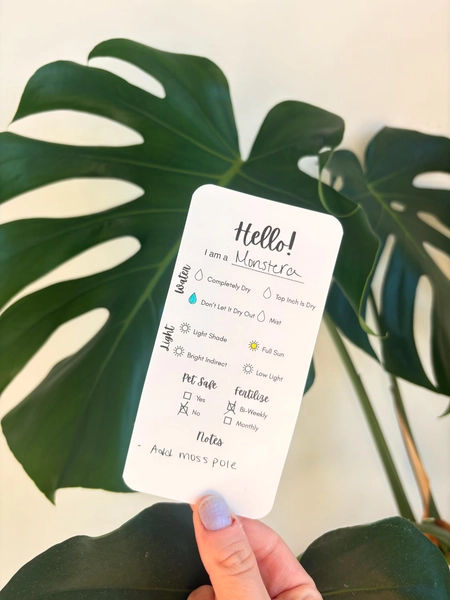 Hello!
I am a Monstera
Water
Completely Dry
Top Inch Is Dry
Don't Let It Dry Out
Mist
Light
Light Shade
Full Sun
Bright Indirect
Low Light
Pet Safe
Yes
No
Fertilize
Bi-Weekly
Monthly
Notes
- Add moss pole